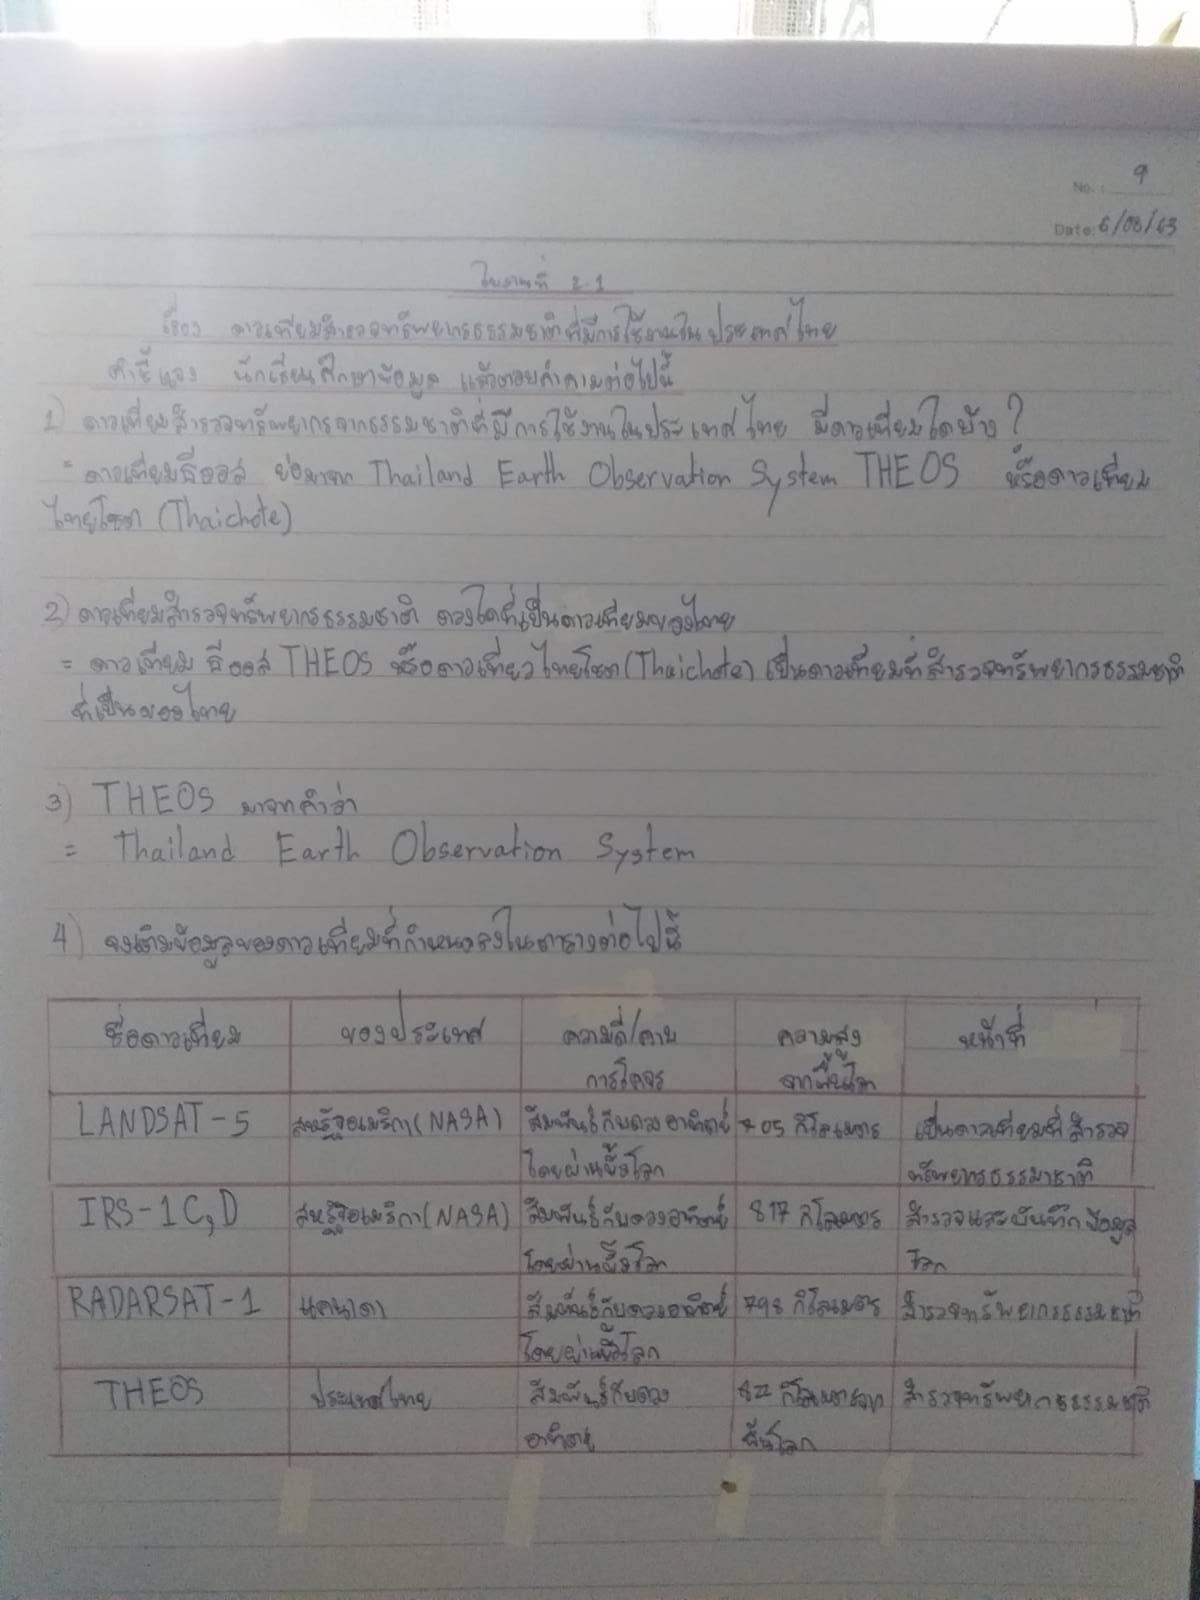 No. : 9
Date: 6/08/63
ใบงานที่ 2.1
เรื่อง ดาวเทียมสำรวจทรัพยากรธรรมชาติที่มีการใช้งานในประเทศไทย
คำชี้แจง นักเรียนศึกษาข้อมูล แล้วตอบคำถามต่อไปนี้
1) ดาวเทียมสำรวจทรัพยากรจากธรรมชาติที่มีการใช้งานในประเทศไทย มีดาวเทียมใดบ้าง ?
= ดาวเทียมธีออส ย่อมาจาก Thailand Earth Observation System THEOS หรือดาวเทียม
ไทยโชต (Thaichote)
2) ดาวเทียมสำรวจทรัพยากรธรรมชาติ ดวงใดที่เป็นดาวเทียมของไทย
= ดาวเทียม ธีออส THEOS หรือดาวเทียวไทยโชต (Thaichote) เป็นดาวเทียมที่สำรวจทรัพยากรธรรมชาติ
ที่เป็นของไทย
3) THEOS มาจากคำว่า
= Thailand Earth Observation System
4) จงเติมข้อมูลของดาวเทียมที่กำหนดลงในตารางต่อไปนี้
ชื่อดาวเทียม ของประเทศ ความถี่/คาบ ความสูง หน้าที่
การโคจร จากพื้นโลก
LANDSAT-5 สหรัฐอเมริกา (NASA) สัมพันธ์กับดวงอาทิตย์ 705 กิโลเมตร เป็นดาวเทียมที่สำรวจ
โดยผ่านขั้วโลก ทรัพยากรธรรมชาติ
IRS-1C,D สหรัฐอเมริกา (NASA) สัมพันธ์กับดวงอาทิตย์ 817 กิโลเมตร สำรวจและบันทึกข้อมูล
โดยผ่านขั้วโลก โลก
RADARSAT-1 แคนาดา สัมพันธ์กับดวงอาทิตย์ 798 กิโลเมตร สำรวจทรัพยากรธรรมชาติ
โดยผ่านขั้วโลก
THEOS ประเทศไทย สัมพันธ์กับดวง 822 กิโลเมตรจาก สำรวจทรัพยากรธรรมชาติ
อาทิตย์ พื้นโลก